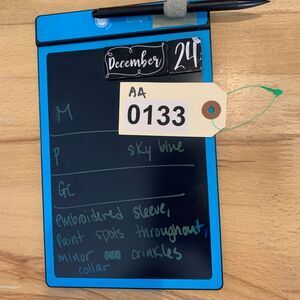 December 24
AA
0133
M
P sky blue
GC
embroidered sleeve,
faint spots throughout,
minor crinkles
collar